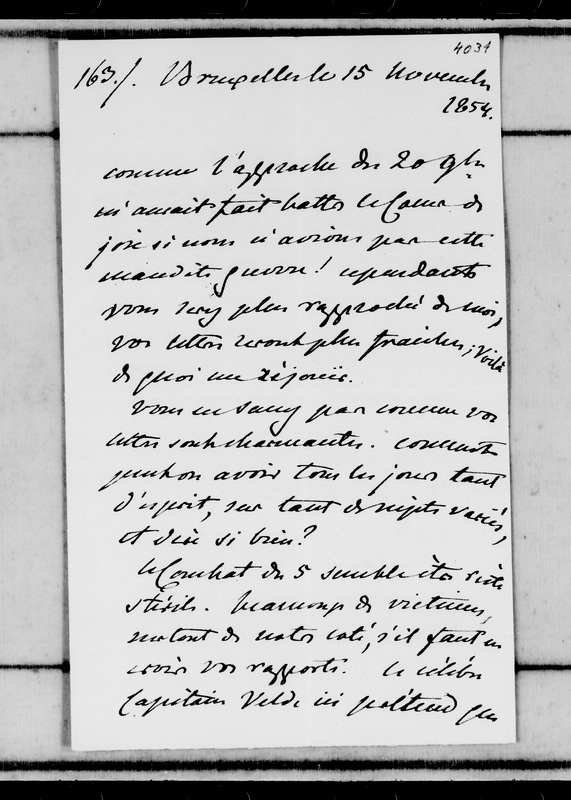 4031
163./. Bruxelles le 15 Novembre
1854.
comme l'approche du 20 9bre
m'aurait fait battre le Coeur de
joie si nous n'avions pas cette
maudite guerre! cependant
vous serez plus rapproché de moi,
vos lettres seront plus fraiches; voilà
de quoi me réjouir.
Vous ne savez pas comme vos
lettres sont charmantes. comment
peut on avoir tous les jours tant
d'esprit, sur tant de sujets variés,
et dire si bien?
le Combat du 5 semble être resté
stérile. beaucoup de victimes,
surtout de notre coté, s'il faut en
croire vos rapports. le célèbre
Capitaine Velde ici prétend que